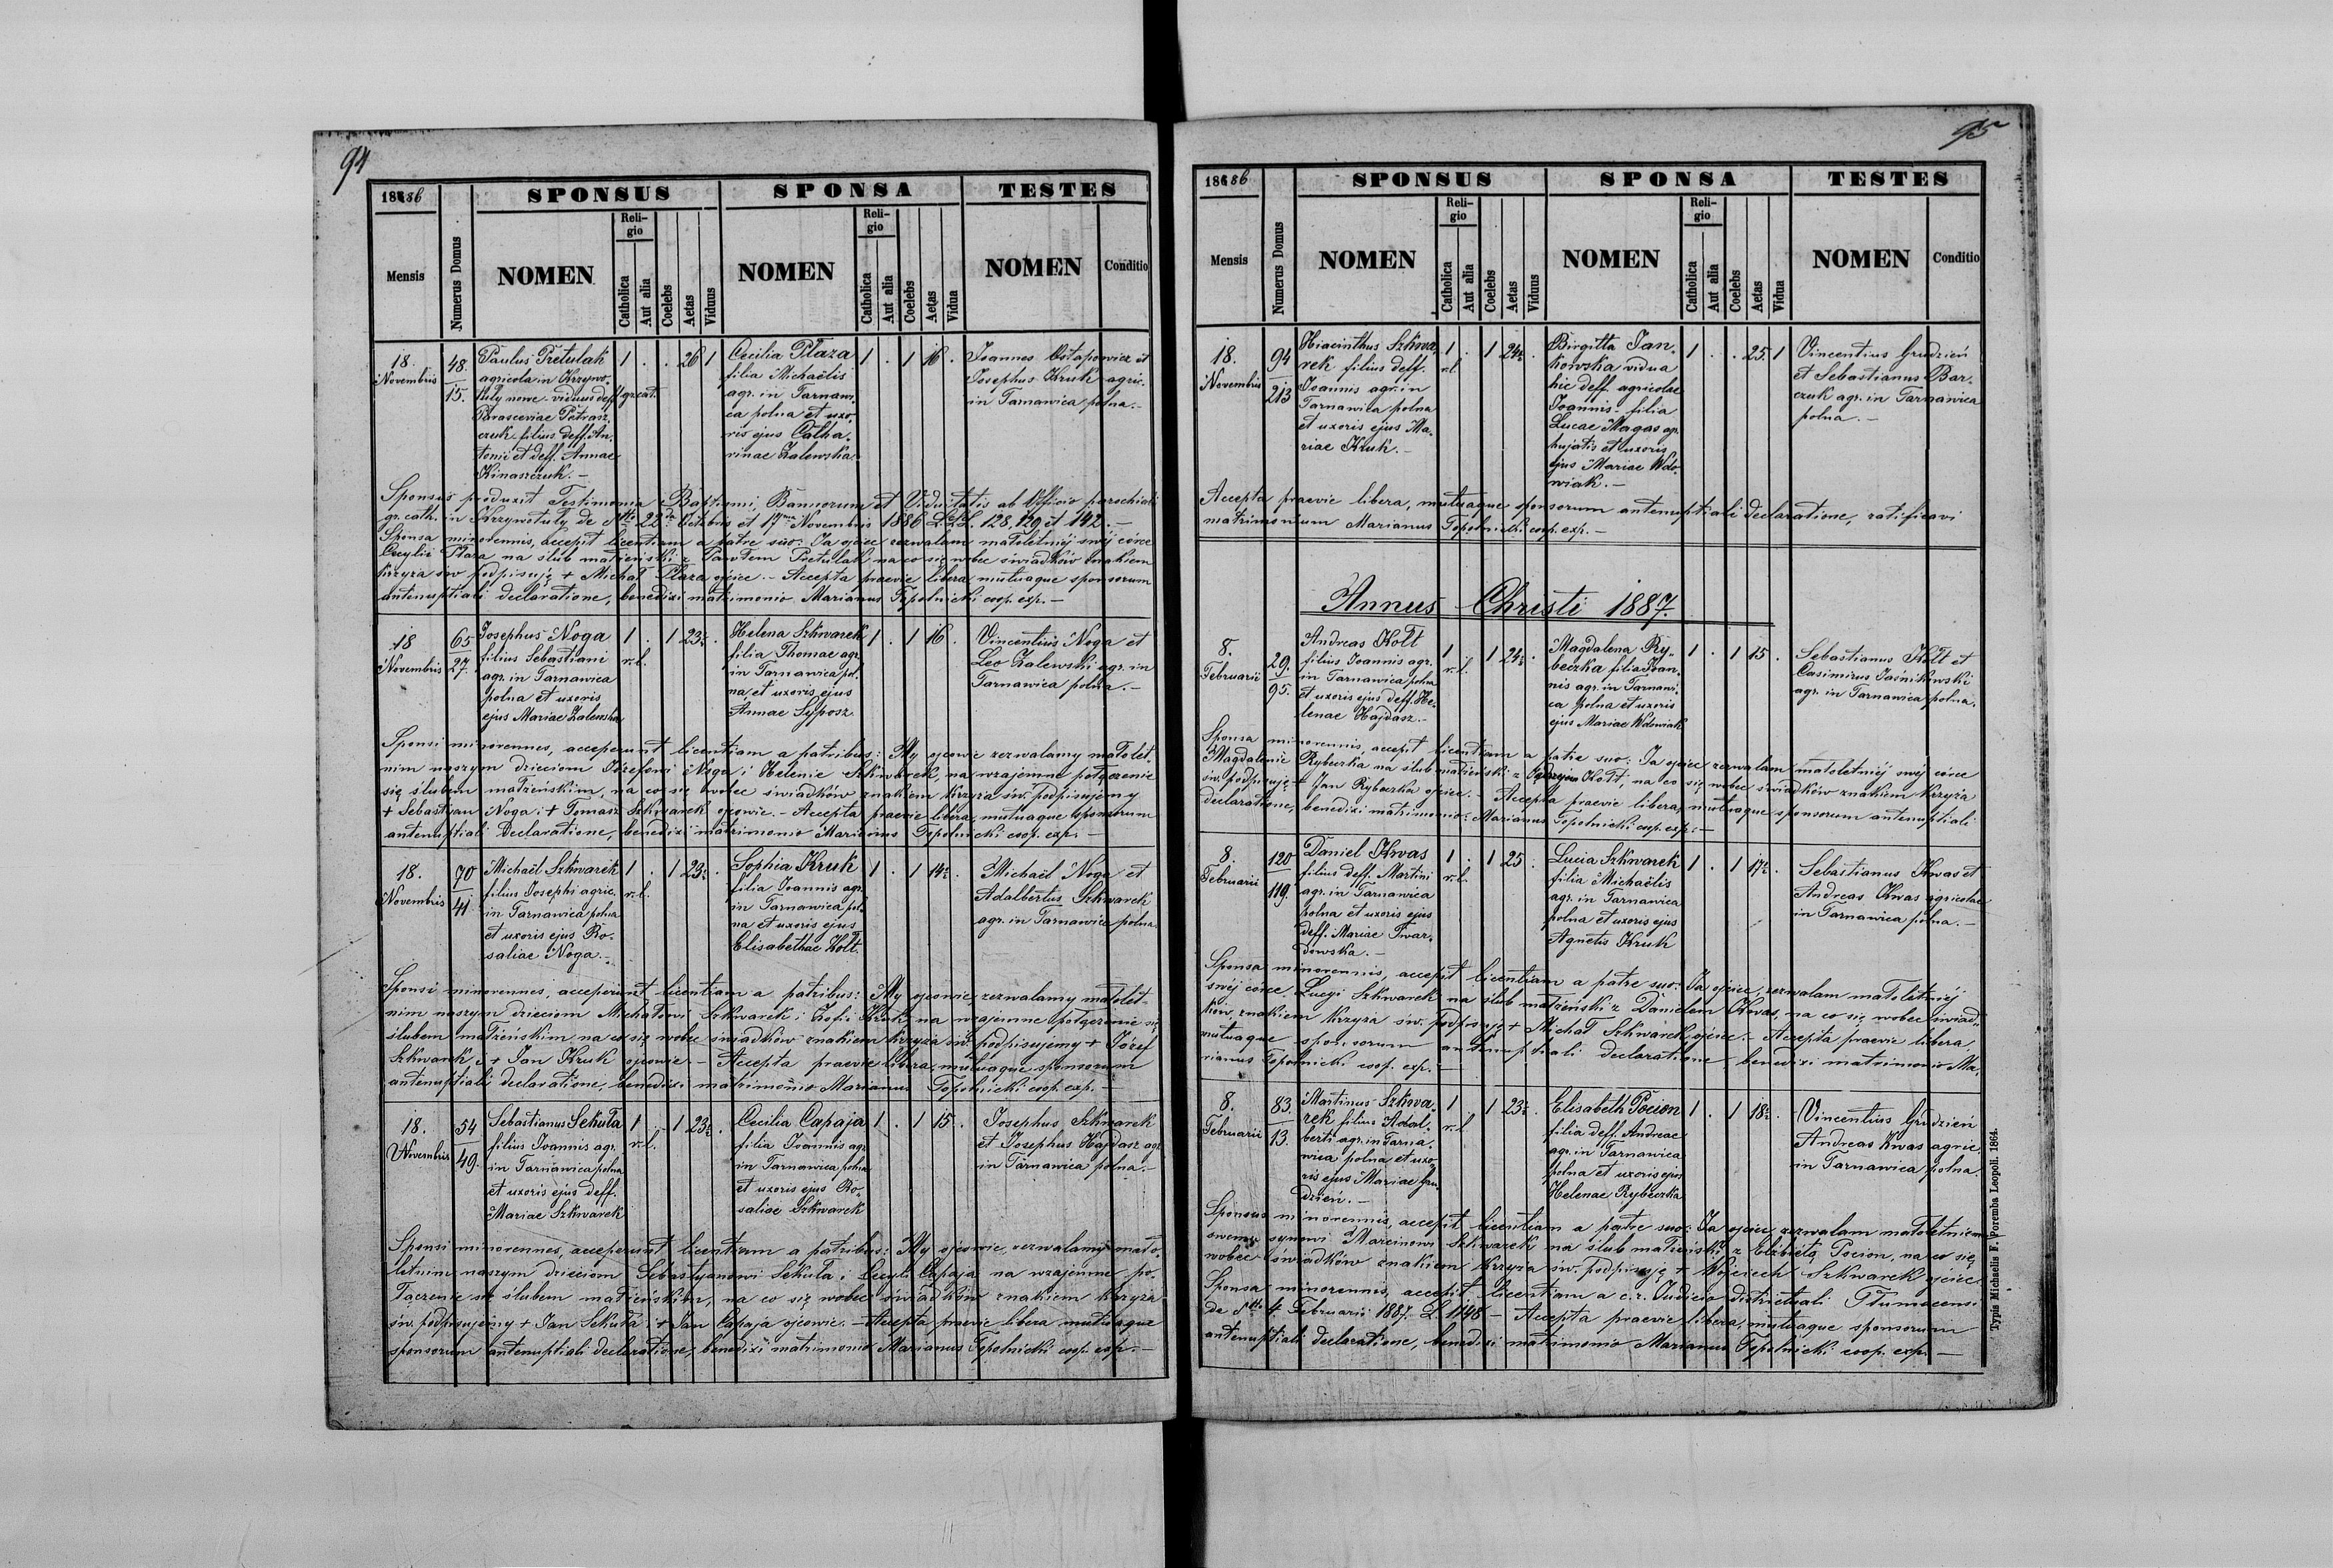 94
1886
SPONSUS
SPONSA
TESTES
Mensis
Numerus Domus
NOMEN
Religio
Catholica
Aut alia
Coelebs
Aetas
Viduus
NOMEN
Religio
Catholica
Aut alia
Coelebs
Aetas
Vidua
NOMEN
Conditio
18. Novembris
48.
15.
Paulus Pretulak
agricola in Krzywo-
tuly nowe - viduus deff
Parasceviae Pietrasz
czuk filius deff. An-
tonii et deff. Annae
Kinasczuk. -
1 . . 26 1
gr. cat.
Cecilia Plaza
filia Michaëlis
agr. in Tarnawi-
ca polna et uxo-
ris ejus Catha-
rinae Zalewska
1 . 1 16 .
Joannes Ostapowicz et
Josephus Kruk agric.
in Tarnawica polna. -
Sponsus produxit Testimonia Baptismi, Bannorum et Viduitatis ab Officio parochiali
gr. cath. in Krzywotuly de dtto 22 Octobris et 17 Novembris 1886 L. 128, 129 et 142. -
Sponsa minorennis, accepit licentiam a patre suo: Ja ojciec zezwalam małoletniéj swéj córce
Cecylii Płaza na ślub małżeński z Pawłem Pretulak na co się wobec świadków znakiem
krzyża św. podpisuję + Michał Płaza ojciec. - Accepta praevie libera, mutuaque sponsorum
antenuptiali declaratione, benedixi matrimonio Marianus Topolnicki coop. exp. -
18 Novembris
65
27.
Josephus Noga
filius Sebastiani
agr. in Tarnawica
polna et uxoris
ejus Mariae Zalewska
1 . 1 23½ .
r. l.
Helena Szkwarek
filia Thomae agr.
in Tarnawica pol-
na et uxoris ejus
Annae Syposz
1 . 1 16 .
Vincentius Noga et
Leo Zalewski agr. in
Tarnawica polna. -
Sponsi minorennes, acceperunt licentiam a patribus: My ojcowie zezwalamy małolet-
nim naszym dzieciom Józefowi Noga i Helenie Szkwarek, na wzajemne połączenie
się ślubem małżeńskim, na co się wobec świadków znakiem krzyża św. podpisujemy
+ Sebastyan Noga i + Tomasz Szkwarek ojcowie. - Accepta praevie libera, mutuaque sponsorum
antenuptiali declaratione, benedixi matrimonio Marianus Topolnicki coop. exp. -
18. Novembris
70
41.
Michaël Szkwarek
filius Josephi agric.
in Tarnawica polna
et uxoris ejus Ro-
saliae Noga. -
1 . 1 23½ .
r. l.
Sophia Kruk
filia Joannis agr.
in Tarnawica pol-
na et uxoris ejus
Elisabethae Kolt.
1 . 1 14½ .
Michaël Noga et
Adalbertus Szkwarek
agr. in Tarnawica polna.
Sponsi minorennes, acceperunt licentiam a patribus: My ojcowie, zezwalamy małolet-
nim naszym dzieciom Michałowi Szkwarek i Zofii Kruk na wzajemne połączenie się
ślubem małżeńskim, na co się wobec świadków znakiem krzyża św. podpisujemy + Józef
Szkwarek i + Jan Kruk ojcowie. - Accepta praevie libera, mutuaque sponsorum
antenuptiali declaratione, benedixi matrimonio Marianus Topolnicki coop. exp. -
18. Novembris
54
49.
Sebastianus Sekuła
filius Joannis agr.
in Tarnawica polna
et uxoris ejus deff.
Mariae Szkwarek
1 . 1 23½ .
r. l.
Cecilia Capaja
filia Joannis agr.
in Tarnawica polna
et uxoris ejus Ro-
saliae Szkwarek
1 . 1 15 .
Josephus Szkwarek
et Josephus Hajdasz agr.
in Tarnawica polna. -
Sponsi minorennes, acceperunt licentiam a patribus: My ojcowie, zezwalamy mało-
letnim naszym dzieciom Sebastyanowi Sekuła i Cecylii Capaja na wzajemne po-
łączenie się ślubem małżeńskim, na co się wobec świadków znakiem krzyża
św. podpisujemy + Jan Sekuła i + Jan Capaja ojcowie. - Accepta praevie libera mutuaque
sponsorum antenuptiali declaratione, benedixi matrimonio Marianus Topolnicki coop. exp. -
95
1886
SPONSUS
SPONSA
TESTES
Mensis
Numerus Domus
NOMEN
Religio
Catholica
Aut alia
Coelebs
Aetas
Viduus
NOMEN
Religio
Catholica
Aut alia
Coelebs
Aetas
Vidua
NOMEN
Conditio
18. Novembris
94
213
Hiacinthus Szkwa-
rek filius deff.
Joannis agr. in
Tarnawica polna
et uxoris ejus Ma-
riae Kruk. -
1 . 1 24½ .
r. l.
Birgitta Jan-
kowska vidua
hic deff. agricolae
Joannis - filia
Lucae Magas agr.
hujatis et uxoris
ejus Mariae Wdo-
wiak. -
1 . . 25 1
Vincentius Grudzień
et Sebastianus Bar-
czuk agr. in Tarnawica
polna. -
Accepta praevie libera, mutuaque sponsorum antenuptiali declaratione, ratificavi
matrimonium Marianus Topolnicki coop. exp. -
Annus Christi 1887.
8. Februarii
29.
95.
Andreas Kolt
filius Joannis agr.
in Tarnawica polna
et uxoris ejus deff. He-
lenae Hajdasz. -
1 . 1 24½ .
r. l.
Magdalena Ry-
beczka filia Joan-
nis agr. in Tarnawi-
ca polna et uxoris
ejus Mariae Wdowiak
1 . 1 15 .
Sebastianus Kolt et
Casimirus Jasnikowski
agr. in Tarnawica polna.
Sponsa minorennis, accepit licentiam a patre suo: Ja ojciec zezwalam małoletniéj swéj córce
Magdalenie Rybeczka na ślub małżeński z Kołt, na co się wobec świadków znakiem krzyża
św. podpisuję + Jan Rybeczka ojciec. - Accepta praevie libera, mutuaque sponsorum antenuptiali
declaratione, benedixi matrimonio: Marianus Topolnicki coop. exp. -
8. Februarii
120
119.
Daniel Kwas
filius deff. Martini
agr. in Tarnawica
polna et uxoris ejus
deff. Mariae Twar-
dowska. -
1 . 1 25 .
r. l.
Lucia Szkwarek
filia Michaëlis
agr. in Tarnawica
polna et uxoris ejus
Agnetis Kruk
1 . 1 17½ .
Sebastianus Kwas et
Andreas Kwas agricolae
in Tarnawica polna. -
Sponsa minorennis, accepit licentiam a patre suo: Ja ojciec, zezwalam małoletniéj
swéj córce Lucyi Szkwarek na ślub małżeński z Danielem Kwas, na co się wobec świad-
ków, znakiem krzyża św. podpisuję + Michał Szkwarek ojciec. - Accepta praevie libera,
mutuaque sponsorum antenuptiali declaratione, benedixi matrimonio Ma-
rianus Topolnicki coop. exp. -
8. Februarii
83.
13.
Martinus Szkwa-
rek filius Adal-
berti agr. in Tarna-
wica polna et uxo-
ris ejus Mariae Gru-
dzień. -
1 . 1 23½ .
r. l.
Elisabeth Pocion
filia deff. Andreae
agr. in Tarnawica
polna et uxoris ejus
Helenae Rybeczka
1 . 1 18½ .
Vincentius Grudzień
Andreas Kwas agric.
in Tarnawica polna.
Sponsus minorennis, accepit licentiam a patre suo: Ja ojciec, zezwalam małoletniemu
swemu synowi Marcinowi Szkwarek na ślub małżeński z Elżbietą Pocion, na co się
wobec świadków znakiem krzyża św. podpisuję + Wojciech Szkwarek ojciec.
Sponsa minorennis, accepit licentiam a c. r. Judicio districtuali Tłumacensi
de dtto 4 Februarii 1887. L. 1148 - Accepta praevie libera, mutuaque sponsorum
antenuptiali declaratione, benedixi matrimonio Marianus Topolnicki coop. exp. -
Typis Michaelis F. Poremba Leopoli. 1864.